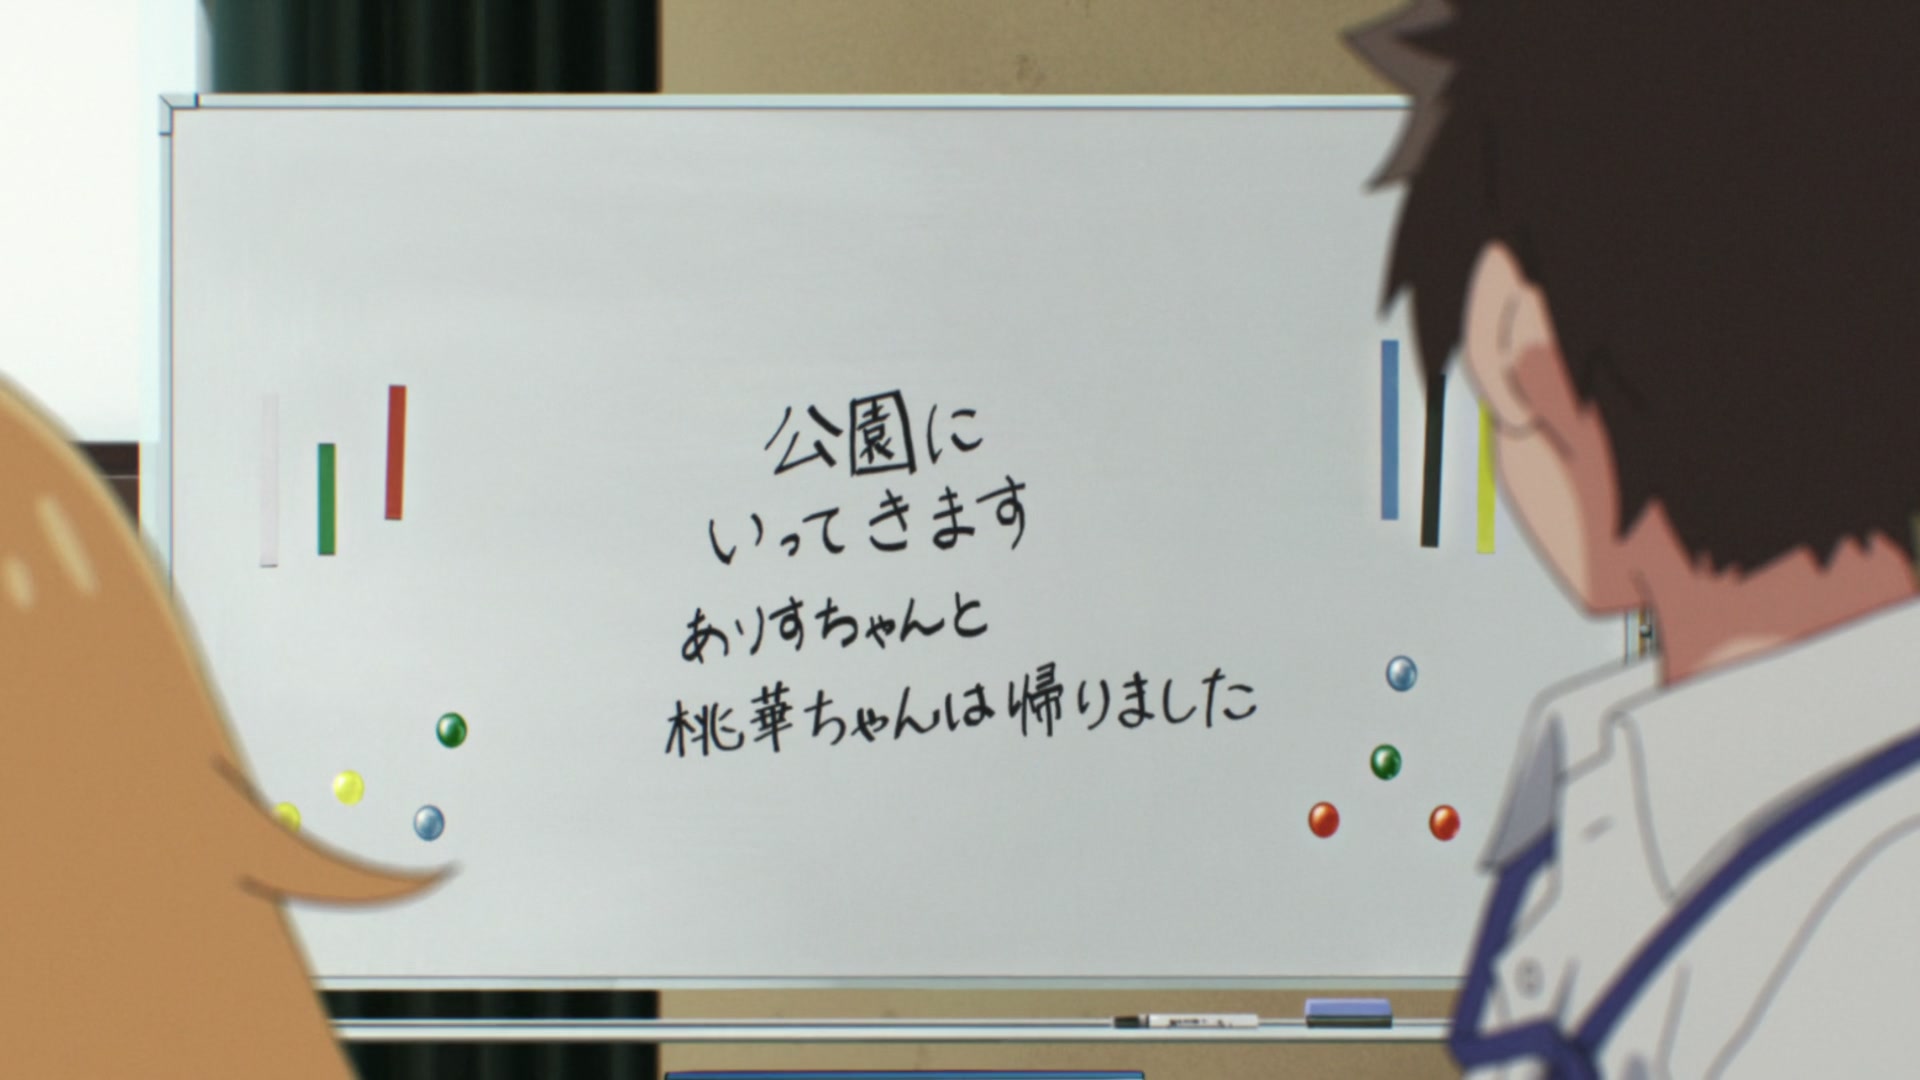 公園に
いってきます
ありすちゃんと
桃華ちゃんは帰りました